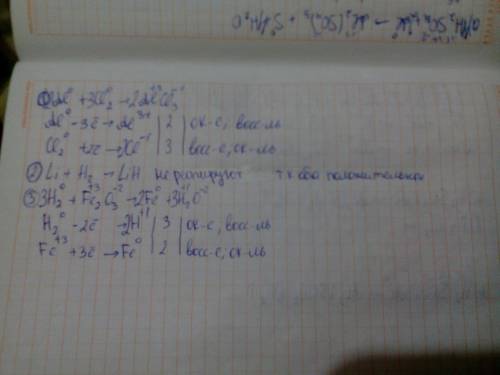 H₂SO₄ + Al⁰ → Al₂⁺³(SO₄)₃ + S⁰ + H₂O
① 2Al⁰ + 3Cl₂⁰ → 2Al⁺³Cl₃⁻¹
Al⁰ - 3ē → Al³⁺ | 2 | ок-е, восс-ль
Cl₂⁰ + 2ē → 2Cl⁻¹ | 3 | восс-е, ок-ль
② Li + H₂ → LiH не реагируют т.к оба положительные
③ 3H₂⁰ + Fe₂⁺³O₃⁻² → 2Fe⁰ + 3H₂⁺¹O⁻²
H₂⁰ - 2ē → 2H⁺¹ | 3 | ок-е, восс-ль
Fe⁺³ + 3ē → Fe⁰ | 2 | восс-е, ок-ль